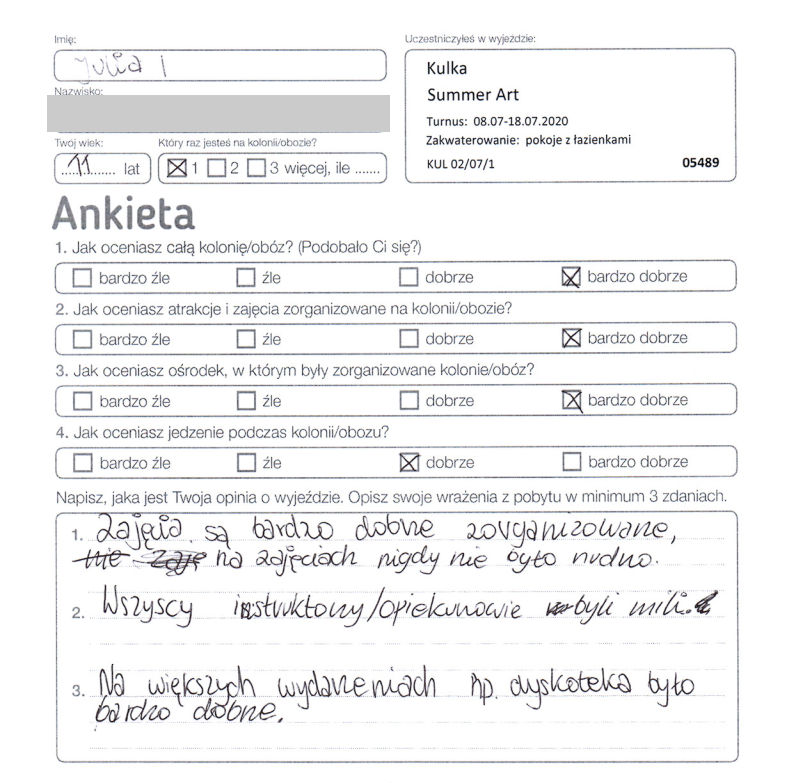 Imię:
Julia
Uczestniczyłeś w wyjeździe:
Kulka
Summer Art
Turnus: 08.07-18.07.2020
Zakwaterowanie: pokoje z łazienkami
KUL 02/07/1 05489
Nazwisko:
Twój wiek:
11 lat
Który raz jesteś na kolonii/obozie?
1 2 3 więcej, ile .......
Ankieta
1. Jak oceniasz całą kolonię/obóz? (Podobało Ci się?)
bardzo źle źle dobrze bardzo dobrze
2. Jak oceniasz atrakcje i zajęcia zorganizowane na kolonii/obozie?
bardzo źle źle dobrze bardzo dobrze
3. Jak oceniasz ośrodek, w którym były zorganizowane kolonie/obóz?
bardzo źle źle dobrze bardzo dobrze
4. Jak oceniasz jedzenie podczas kolonii/obozu?
bardzo źle źle dobrze bardzo dobrze
Napisz, jaka jest Twoja opinia o wyjeździe. Opisz swoje wrażenia z pobytu w minimum 3 zdaniach.
1. Zajęcia są bardzo dobrze zorganizowane,
na zajęciach nigdy nie było nudno.
2. Wszyscy instruktorzy/opiekunowie byli mili.
3. Na większych wydarzeniach np. dyskoteka było
bardzo dobrze.